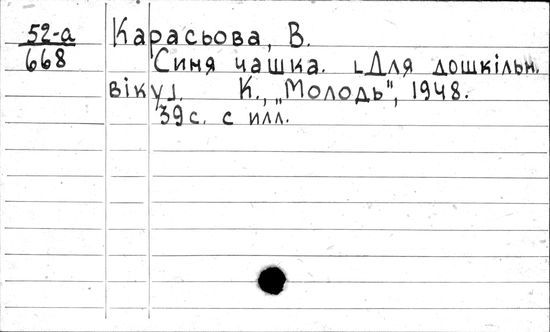 52-а
668
Карасьова, В.
Синя чашка. [Для дошкільн.
віку]. К., „Молодь", 1948.
39с. с илл.